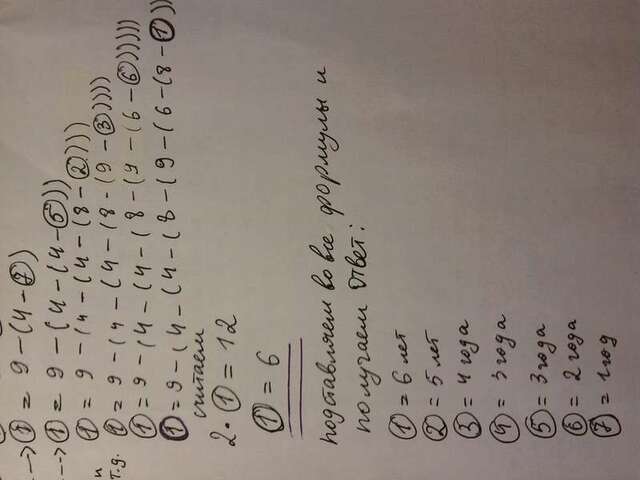 --> ① = 9 - (4 - ⑦))
--> ① = 9 - (4 - (4 - ⑤)))
и ① = 9 - (4 - (4 - (8 - ②))))
т.д. ① = 9 - (4 - (4 - (8 - (9 - ③)))))
① = 9 - (4 - (4 - (8 - (9 - (6 - ⑥))))))
① = 9 - (4 - (4 - (8 - (9 - (6 - (8 - ①))
считаем
2 · ① = 12
① = 6
подставляем во все формулы и
получаем ответ:
① = 6 лет
② = 5 лет
③ = 4 года
④ = 3 года
⑤ = 3 года
⑥ = 2 года
⑦ = 1 год